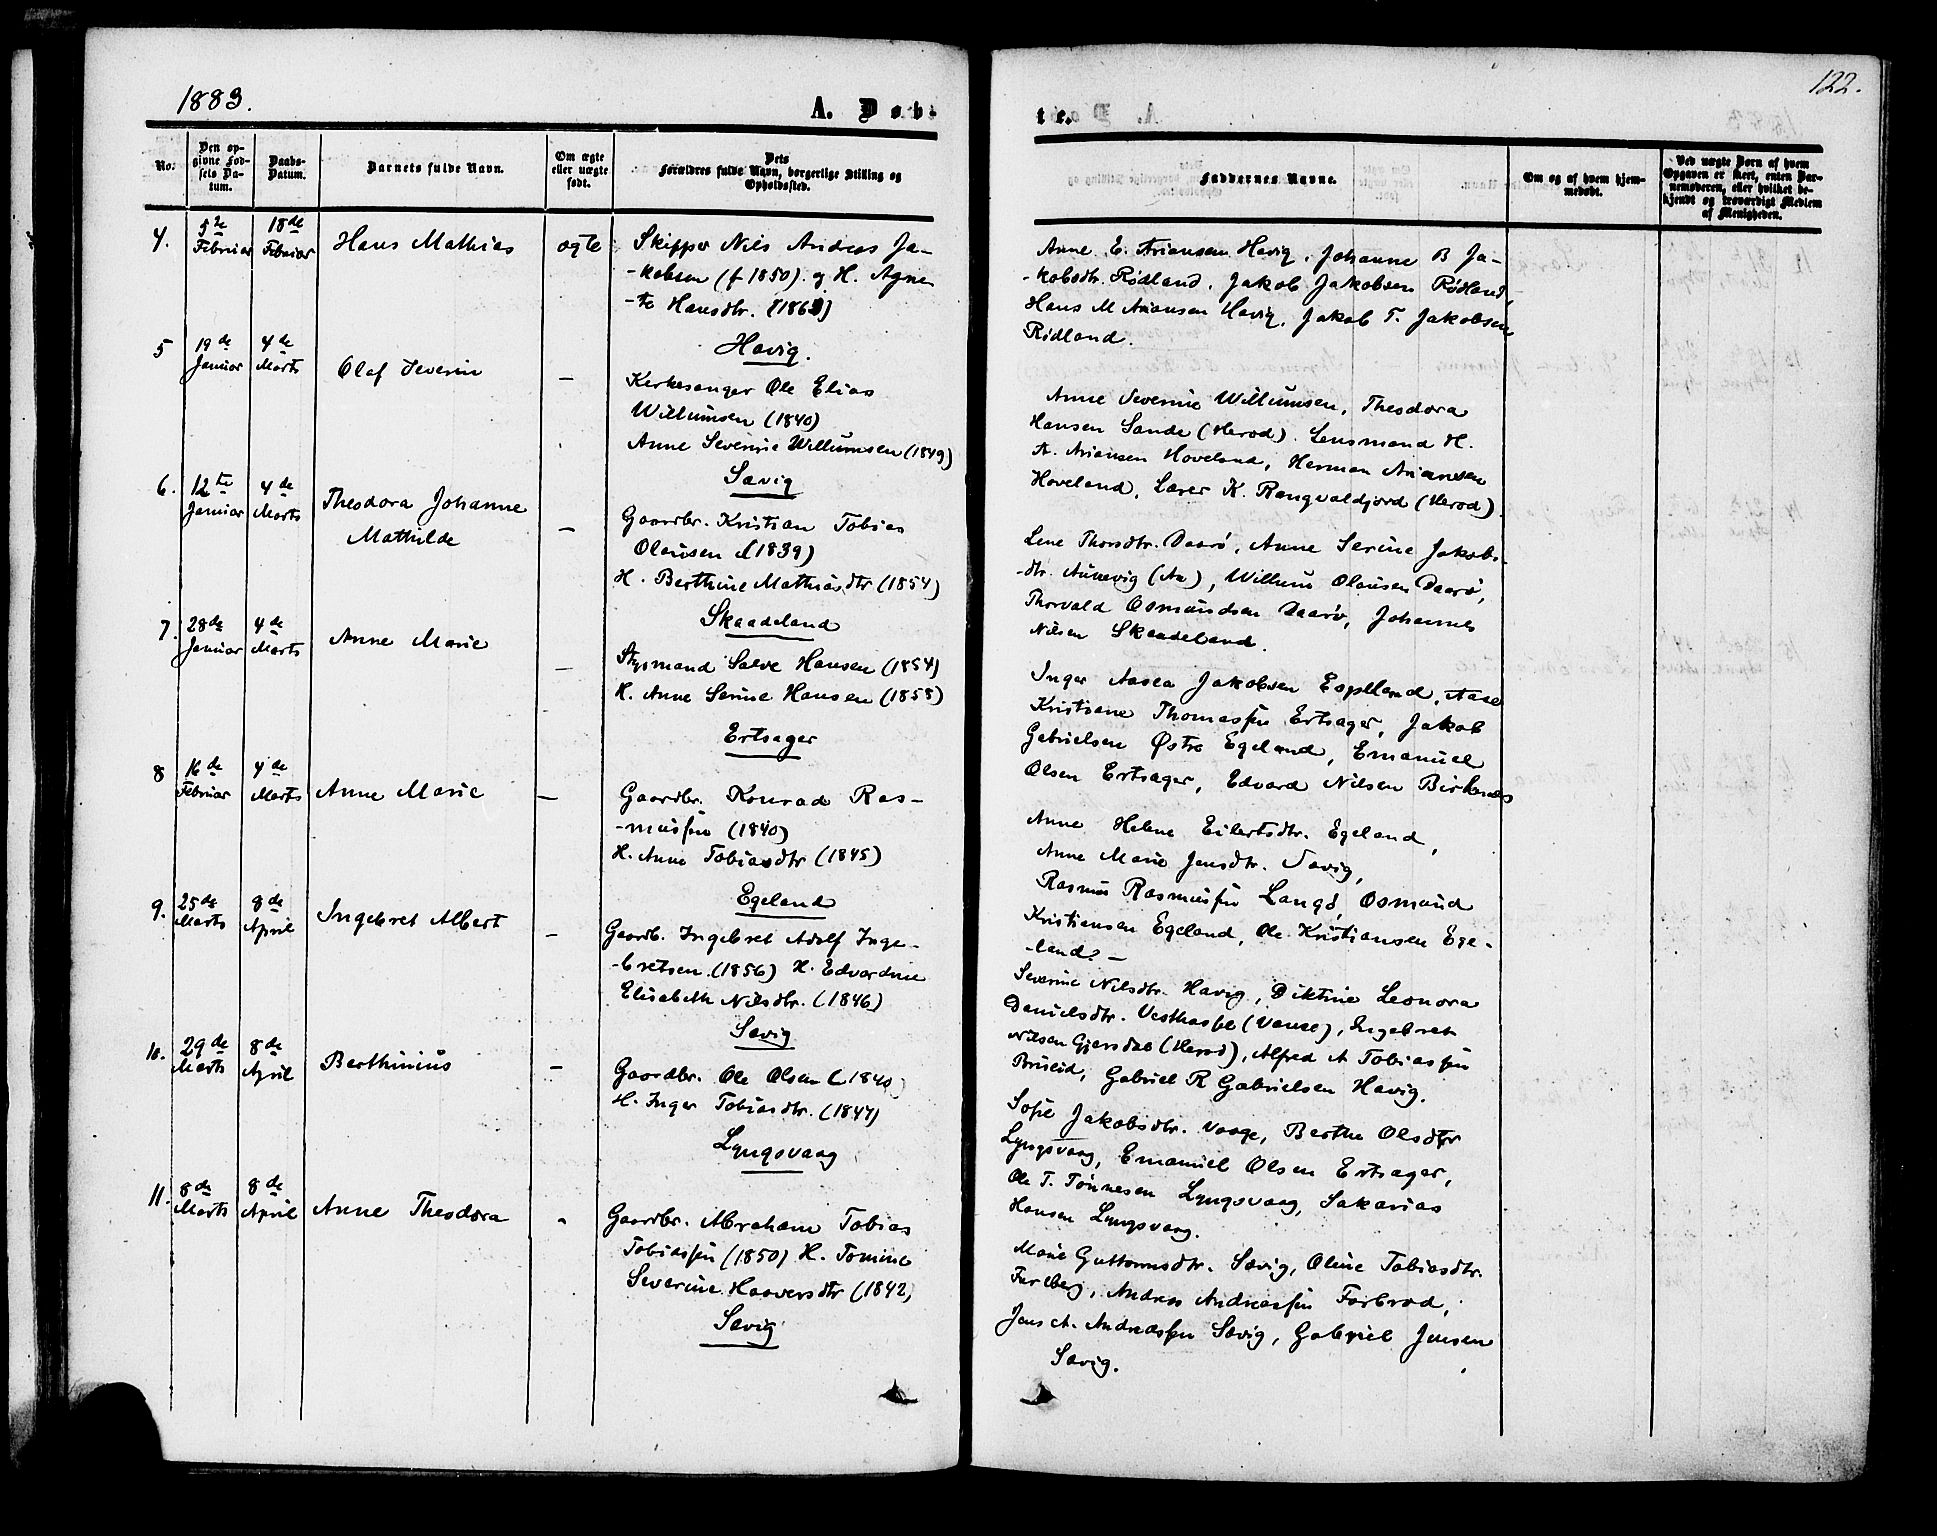 1883.
A. Døb-
No.
Den op-
givne Fød-
sels Da-
tum.
Daabs-
Datum.
Barnets fulde Navn.
Om ægte
eller uægte
født.
Dets
Forældres fulde Navn, borgerlige Stilling og
Opholdssted.
4.
5te
Februar
18de
Februar
Hans Mathias
ægte
Skipper Nils Andreas Ja-
-kobsen (f 1850) og H. Agne-
-te Hansdtr.
Havig.
5
19de
Januar
4de
Marts
Olaf Severin
—
Kirkesanger Ole Elias
Willumsen (1840)
Anne Severine Willumsen (1849)
Sævig
6.
12te
Januar
4de
Marts
Theodora Johanne
Mathilde
—
Gaardbr. Kristian Tobias
Olausen (1839)
H. Berthine Mathiasdtr (1854)
Skaadeland
7.
28de
Januar
4de
Marts
Anne Marie
—
Styrmand Salve Hansen (1854)
H. Anne Serine Hansen (1858)
Ertsager
8
16de
Februar
4de
Marts
Anne Marie
—
Gaardbr. Konrad Ras-
-mussen (1840)
H. Anne Tobiasdtr (1845)
Egeland
9.
25de
Marts
8de
April
Ingebret Albert
—
Gaardb. Ingebret Adolf Inge-
-bretsen (1856) H. Edvardine
Elisabeth Nilsdtr. (1846)
Sævig
10.
29de
Marts
8de
April
Berthinius
—
Gaardbr. Ole Olsen (1840)
H. Inger Tobiasdtr. (1847)
Lyngsvaag
11.
8de
Marts
8de
April
Anne Theodora
-
Gaardbr. Abraham Tobias
Tobiassen (1850) H. Tomine
Severine Haaversdtr (1842)
Sævig
122.
te.
Faddernes Navne.
Om og af hvem hjem-
medøbt.
Ved uægte Børn af hvem
Opgaven er skeet, enten Bar-
nemoderen, eller hvilket be-
kjendt og troværdigt Medlem
af Menigheden.
Anne E. Ariansen Havig, Johanne B Ja-
-kobsdtr. Rødland, Jakob Jakobsen Rødland,
Hans M Ariansen Havig, Jakob T. Jakobsen
Rødland.
Anne Severine Willumsen, Theodora
Hansen Sande (Herod). Lensmand H.
A. Ariansen Hoveland, Herman Ariansen
Hoveland, Lærer K. Rangvaldjord (Herod).
Lene Thorsdtr. Daarø, Anne Serine Jakobs-
-dtr. Aunevig (Aa), Willum Olausen Daarø,
Thorvald Osmundsen Daarø, Johannes
Nilsen Skaadeland.
Inger Aasea Jakobsen Espeland, Aase
Kristiane Thomassen Ertsager, Jakob
Gabrielsen Østre Egeland, Emanuel
Olsen Ertsager, Edvard Nilsen Birkenes
Anne Helene Eilertsdtr. Egeland,
Anne Marie Jensdtr. Sævig,
Rasmus Rasmussen Langø, Osmund
Kristiansen Egeland, Ole Kristiansen Ege-
-land. —
Severine Nilsdtr. Havig, Diktine Leonora
Danielsdtr. Vesthassel (Vanse), Ingebret
Nilsen Gjersdal (Herod), Alfred A Tobiassen
Brueid, Gabriel R Gabrielsen Havig.
Sofie Jakobsdtr. Vaage, Berthe Olsdtr
Lyngsvaag, Emanuel Olsen Ertsager,
Ole T. Tønnesen Lyngsvaag, Sakarias
Hansen Lyngsvaag.
Marie Guttormsdtr. Sævig, Oline Tobiasdtr.
Andreas Andreassen Førbrod,
Jens A. Andreassen Sævig, Gabriel Jensen
Sævig.